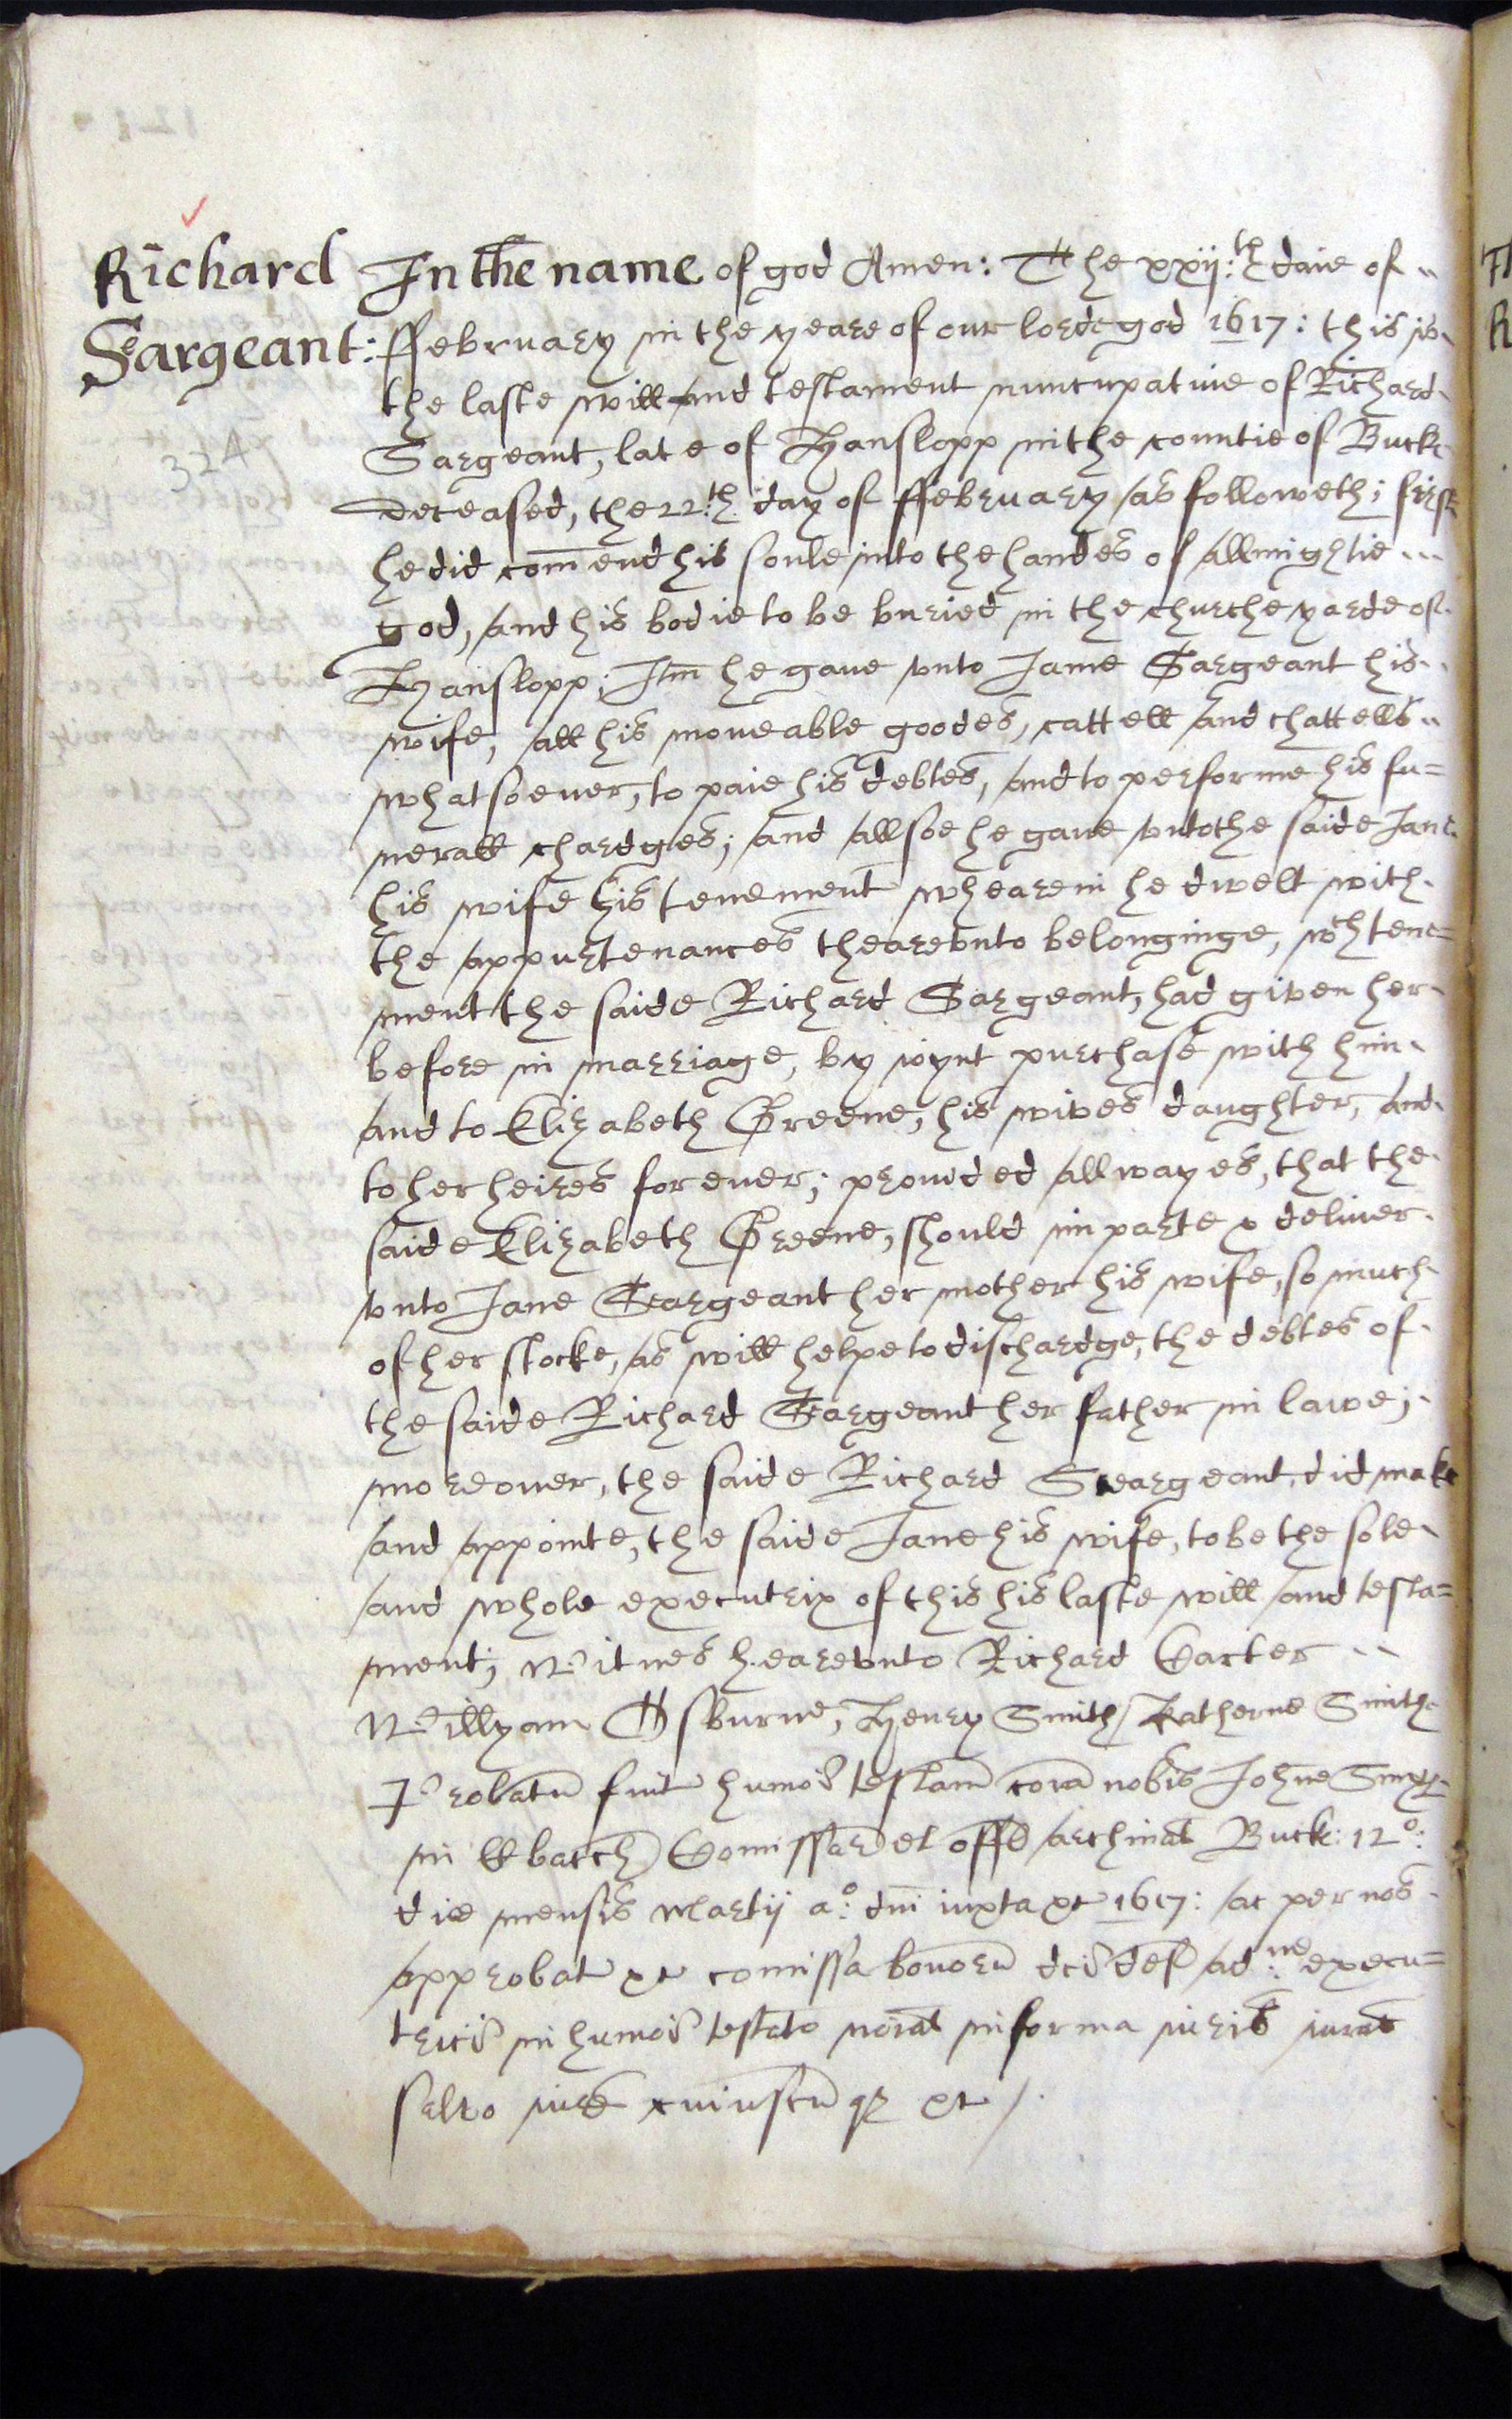 Richard
Seargeant:
324
In the name of god Amen: The xxij:th daie of
ffebruary in the yeare of our lorde god 1617: this is
the laste will and testament nuncupatiue of Richard
Sargeant, late of Hanslopp in the countie of Buck
deceased, the 22:th day of ffebruary as followeth; first
he did com̄end his soule into the handes of allmightie
god, and his bodie to be buried in the churche yarde of
Hanslopp; Itm̄ he gaue vnto Jane Sargeant his
wife, all his moueable goodes, cattell and chattells
whatsoeuer, to paie his debtes, and to performe his fu=
nerall chardges; and allsoe he gaue vnto the saide Jane
his wife his tenement whearein he dwelt with
the appurtenances thearevnto belonginge, wch tene=
ment the saide Richard Sargeant, had given her
before in marriage, by ioynt purchase with him
and to Elizabeth Greene, his wives daughter, and
to her heires for euer; prouided allwayes, that the
saide Elizabeth Greene, should imparte & deliuer
vnto Jane Seargeant her mother his wife, so much
of her stocke, as will helpe to dischardge, the debtes of
the saide Richard Seargeant her father in lawe;
moreouer, the saide Richard Seargeant, did make
and appointe, the saide Jane his wife, to be the sole
and whole executrix of this his laste will and testa=
ment; Witnes hearevnto Richard Carter
Willyam Osburne, Henry Smith, Katherne Smithe
Probatū fuit humoi testam̄ corā nobis Johne
in ll bacch Comissar et offic archinat Buck: 12o:
die mensis Martij ao: dni iuxta &c 1617: ac per nos
approbat &c comissa bonorū dci def ad:ne execu=
trici in humoi testato noīat in forma iuris iurat
salvo iure cuiuscūqz &c /.